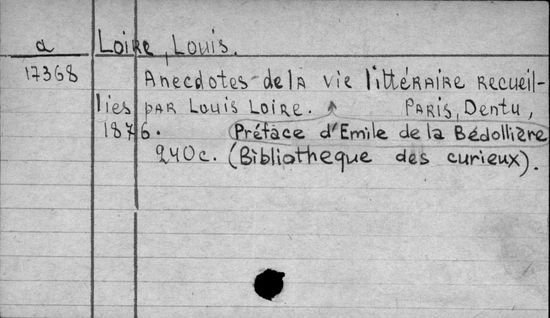 a Loire, Louis.
17368 Anecdotes de la vie littéraire recueil-
lies par Louis Loire. Paris, Dentu,
1876. Préface d'Emile de la Bédollière
240c. (Bibliotheque des curieux).